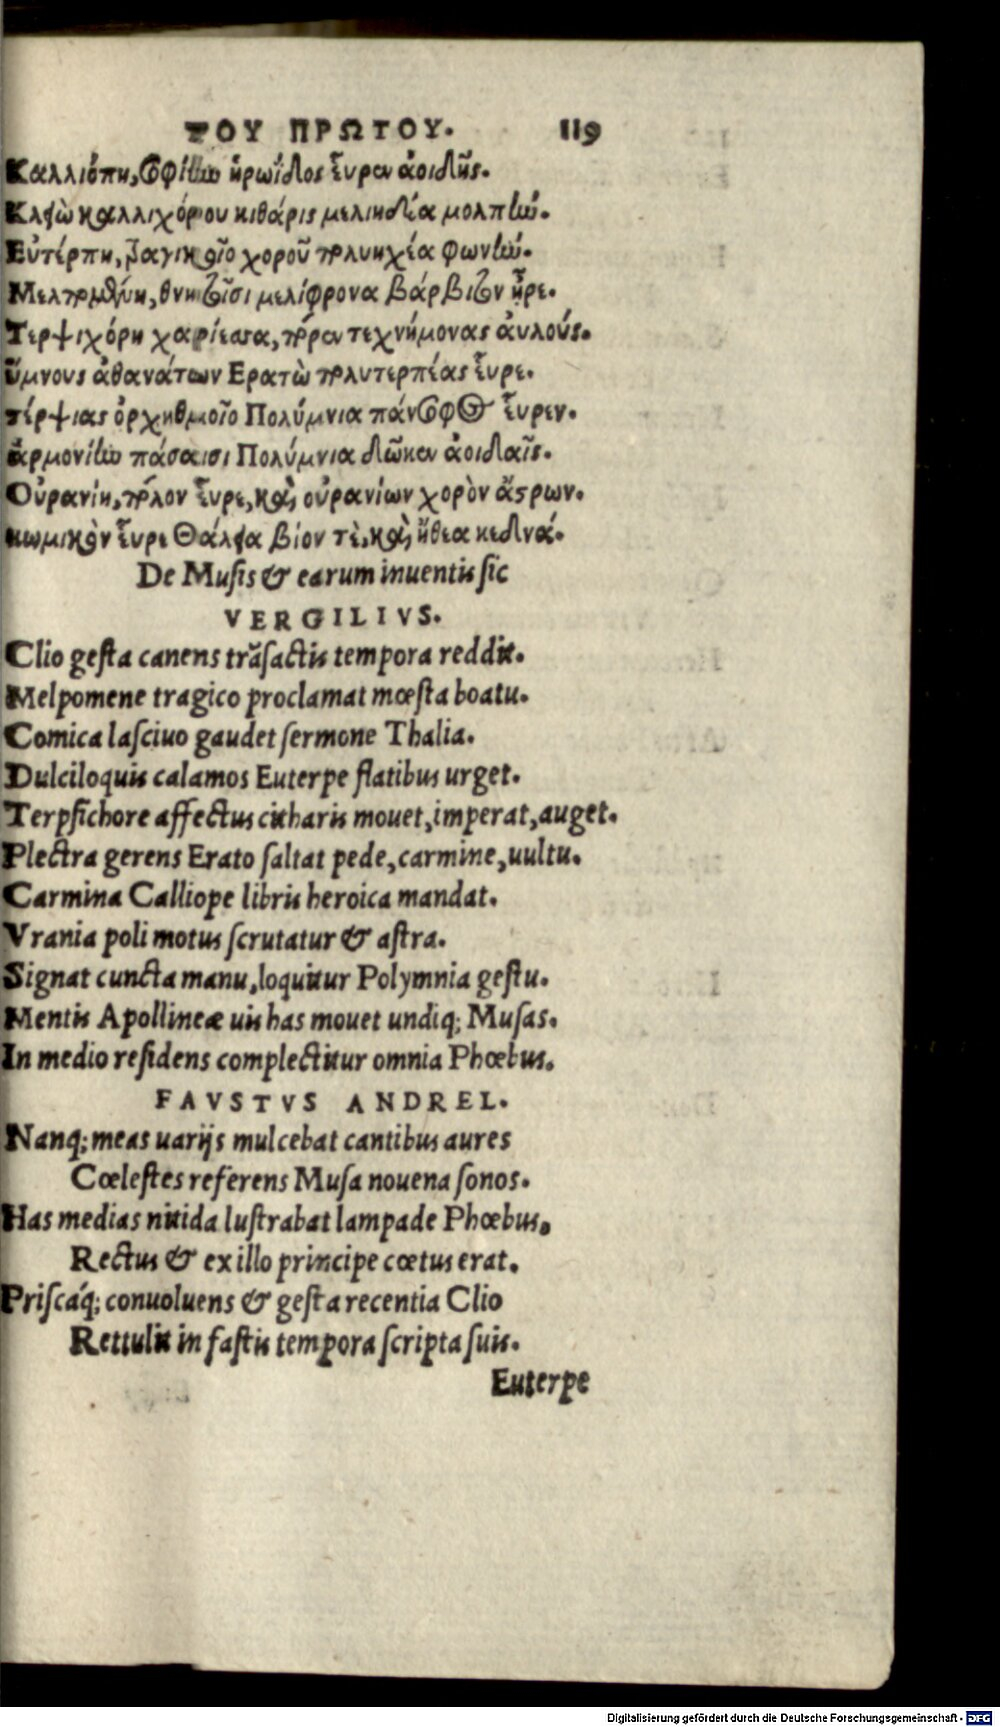 ΤΟΥ ΠΡΩΤΟΥ. 119
Καλλιόπη, σοφίην ἡρωΐδος εὗρεν ἀοιδῆς.
Κλειὼ καλλιχόρου κιθάρης μελιηδέα μολπήν.
Εὐτέρπη, τραγικοῖο χοροῦ πολυηχέα φωνήν.
Μελπομένη, θνητοῖσι μελίφρονα βάρβιτον ηὗρε.
Τερψιχόρη χαρίεσσα, πόρεν τεχνήμονας αὐλούς.
ὕμνους ἀθανάτων Ερατὼ πολυτερπέας εὗρε.
τέρψιας ὀρχηθμοῖο Πολύμνια πάνσοφος εὗρεν.
ἁρμονίην πάσαισι Πολύμνια δῶκεν ἀοιδαῖς.
Οὐρανίη, πόλον εὗρε, καὶ οὐρανίων χορὸν ἄστρων.
κωμικὸν εὗρε Θάλεια βίον τε, καὶ ἤθεα κεδνά.
De Musis & earum inuentis sic
VERGILIVS.
Clio gesta canens trãsactis tempora reddit.
Melpomene tragico proclamat mœsta boatu.
Comica lasciuo gaudet sermone Thalia.
Dulciloquis calamos Euterpe flatibus urget.
Terpsichore affectus citharis mouet, imperat, auget.
Plectra gerens Erato saltat pede, carmine, uultu.
Carmina Calliope libris heroica mandat.
Vrania poli motus scrutatur & astra.
Signat cuncta manu, loquitur Polymnia gestu.
Mentis Apollineæ uis has mouet undiq; Musas.
In medio residens complectitur omnia Phœbus.
FAVSTVS ANDREL.
Nanq; meas uarijs mulcebat cantibus aures
Cœlestes referens Musa nouena sonos.
Has medias nitida lustrabat lampade Phœbus.
Rectus & ex illo principe cœtus erat.
Priscáq; conuoluens & gesta recentia Clio
Rettulit in fastis tempora scripta suis.
Euterpe
Digitalisierung gefördert durch die Deutsche Forschungsgemeinschaft - DFG